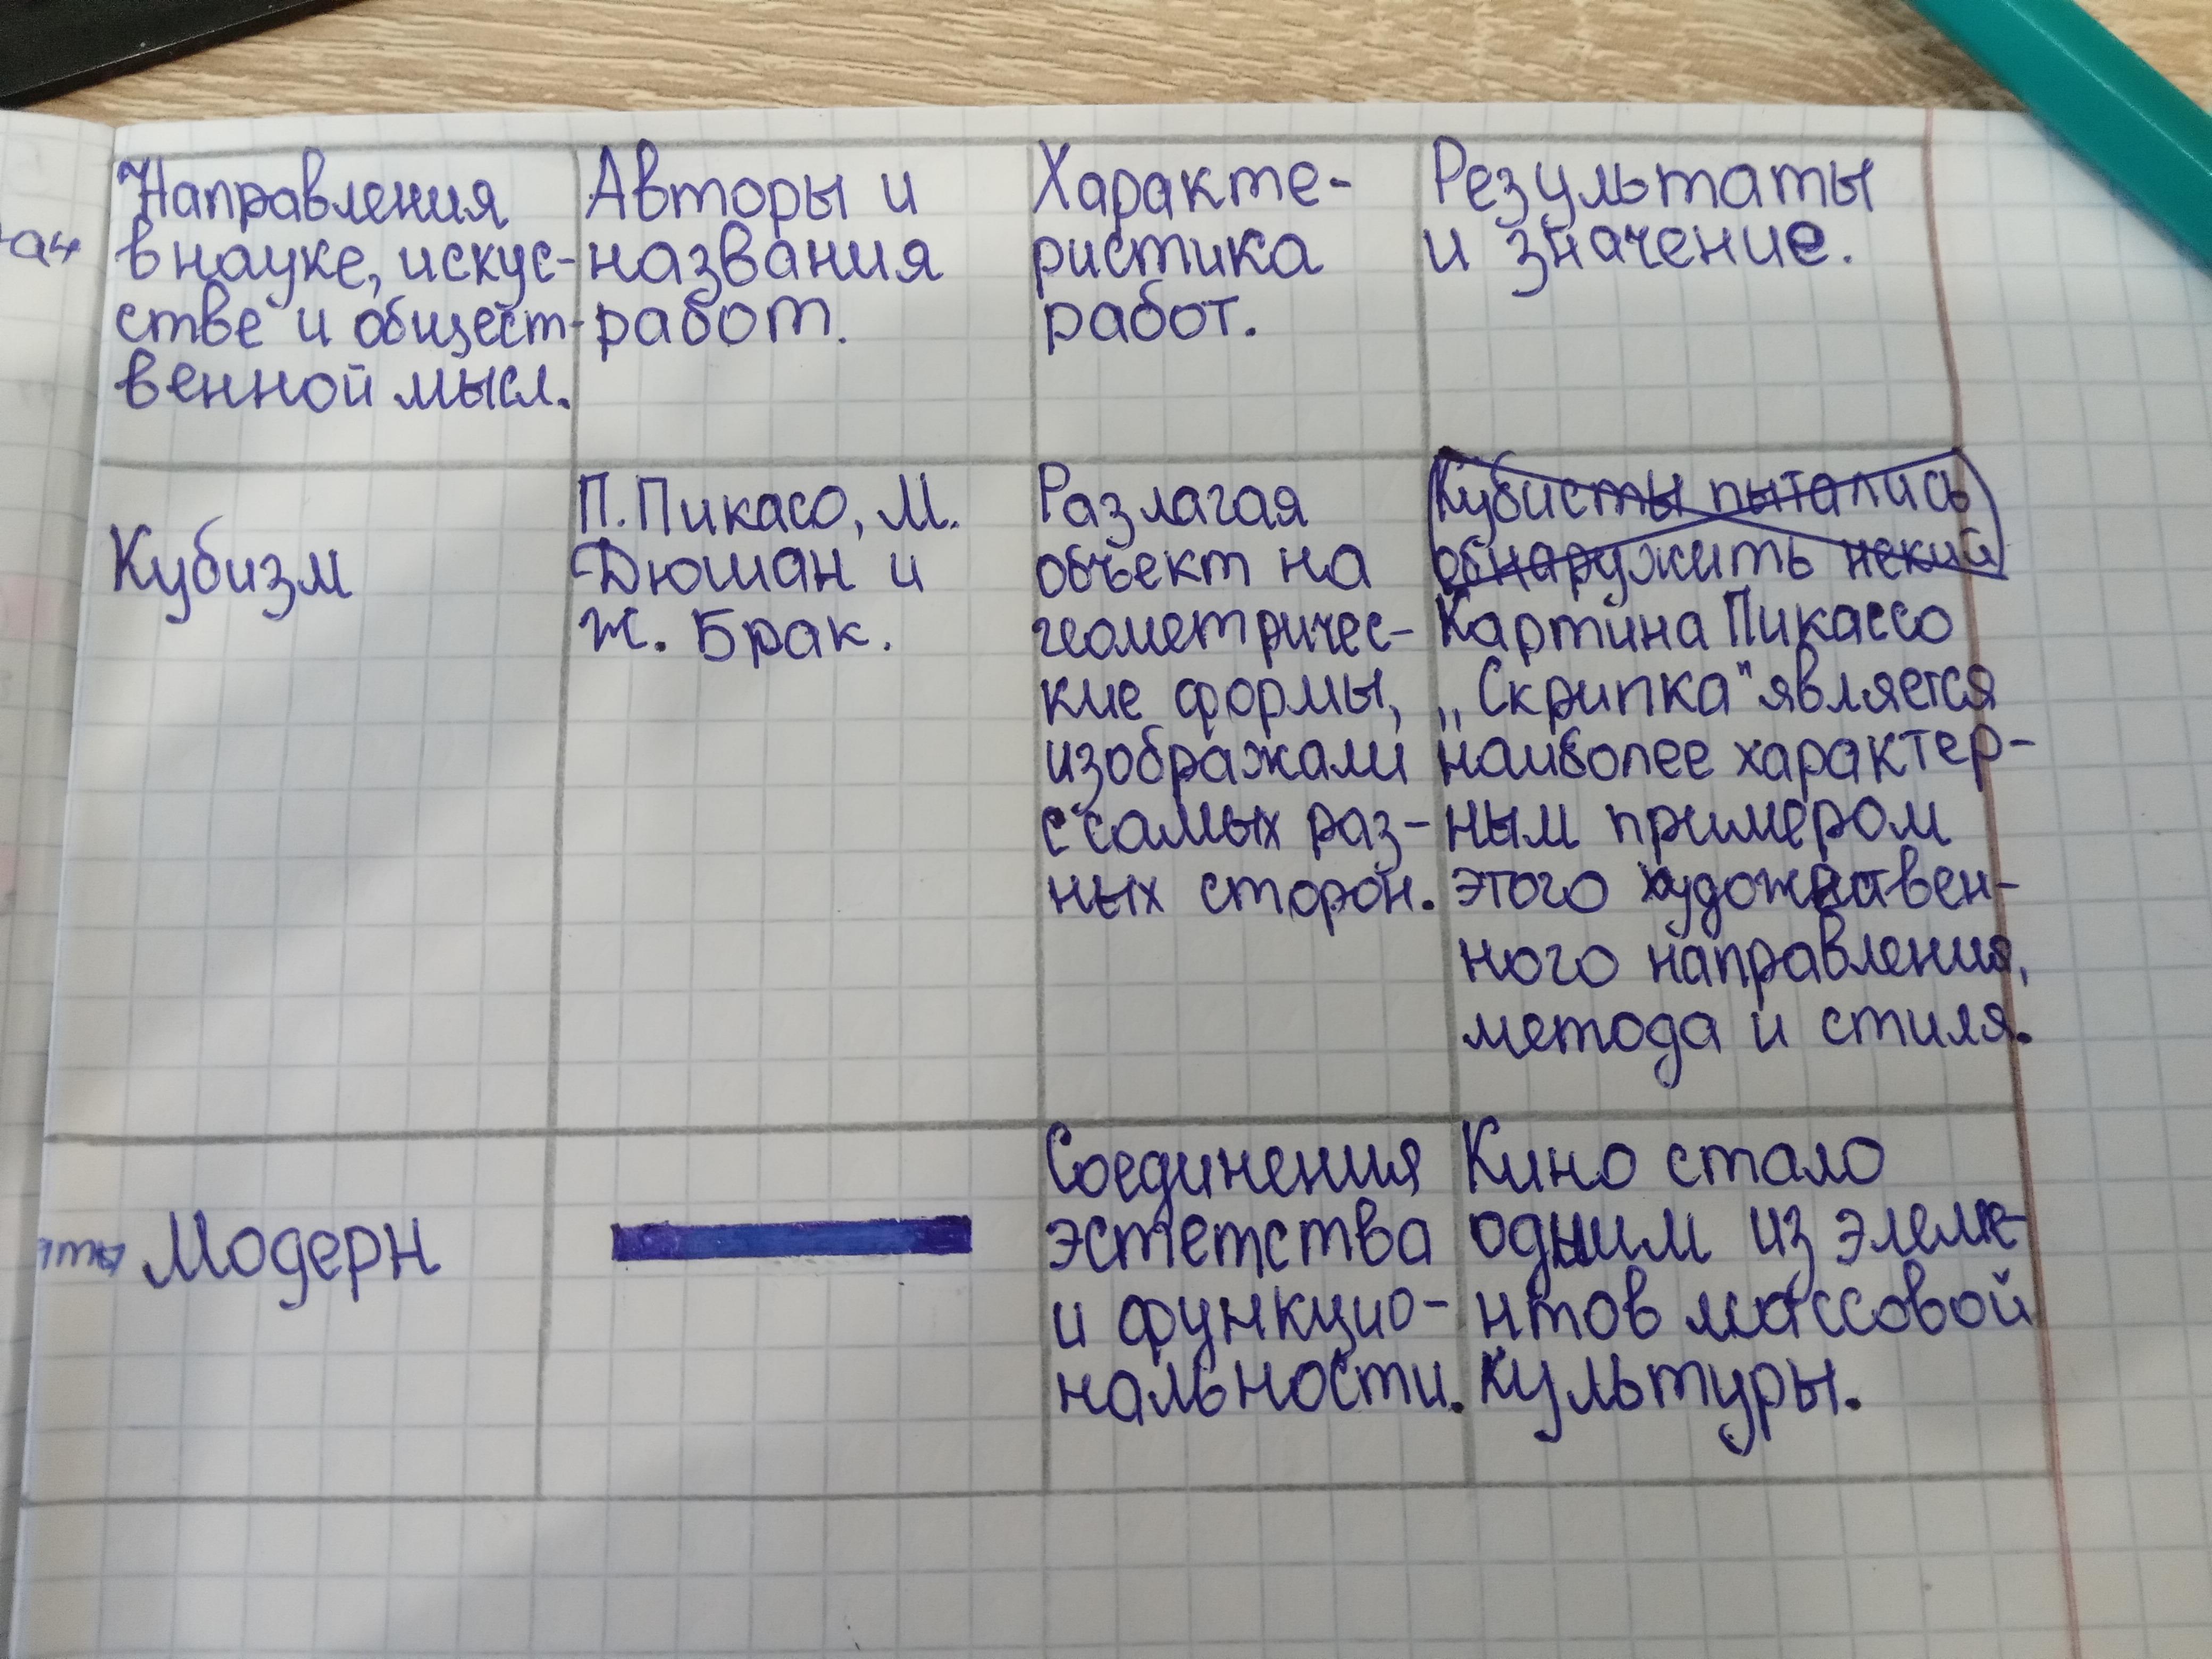 Направления
в науке, искус-
стве и общест-
венной мысл.
Авторы и
названия
работ.
Характе-
ристика
работ.
Результаты
и значение.
Кубизм
П. Пикасо, М.
Дюшан и
Ж. Брак.
Разлагая
объект на
геометричес-
кие формы,
изображали
с самых раз-
ных сторон.
Кубисты пытались
обнаружить некий
Картина Пикассо
„Скрипка" является
наиболее характер-
ным примером
этого
ного направления,
метода и стиля.
Модерн
Соединения
эстетства
и функцио-
нальности.
Кино стало
одним из элеме-
нтов массовой
культуры.